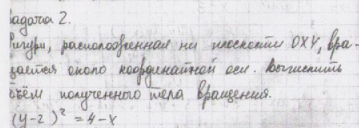 адача 2.
игура, расположенная на плоскости OXY, вра-
щается около координатной оси. Вычислить
объём полученного тела вращения.
(y-2)² = 4-x